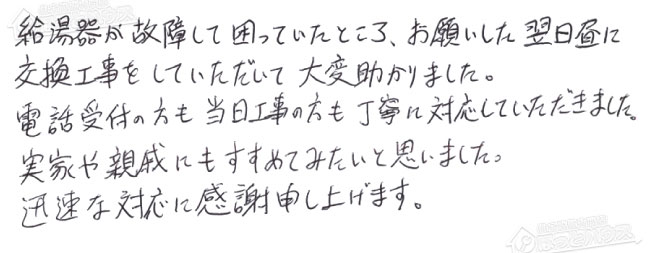 給湯器が故障して困っていたところ、お願いした翌日昼に
交換工事をしていただいて大変助かりました。
電話受付の方も当日工事の方も丁寧に対応していただきました。
実家や親戚にもすすめてみたいと思いました。
迅速な対応に感謝申し上げます。